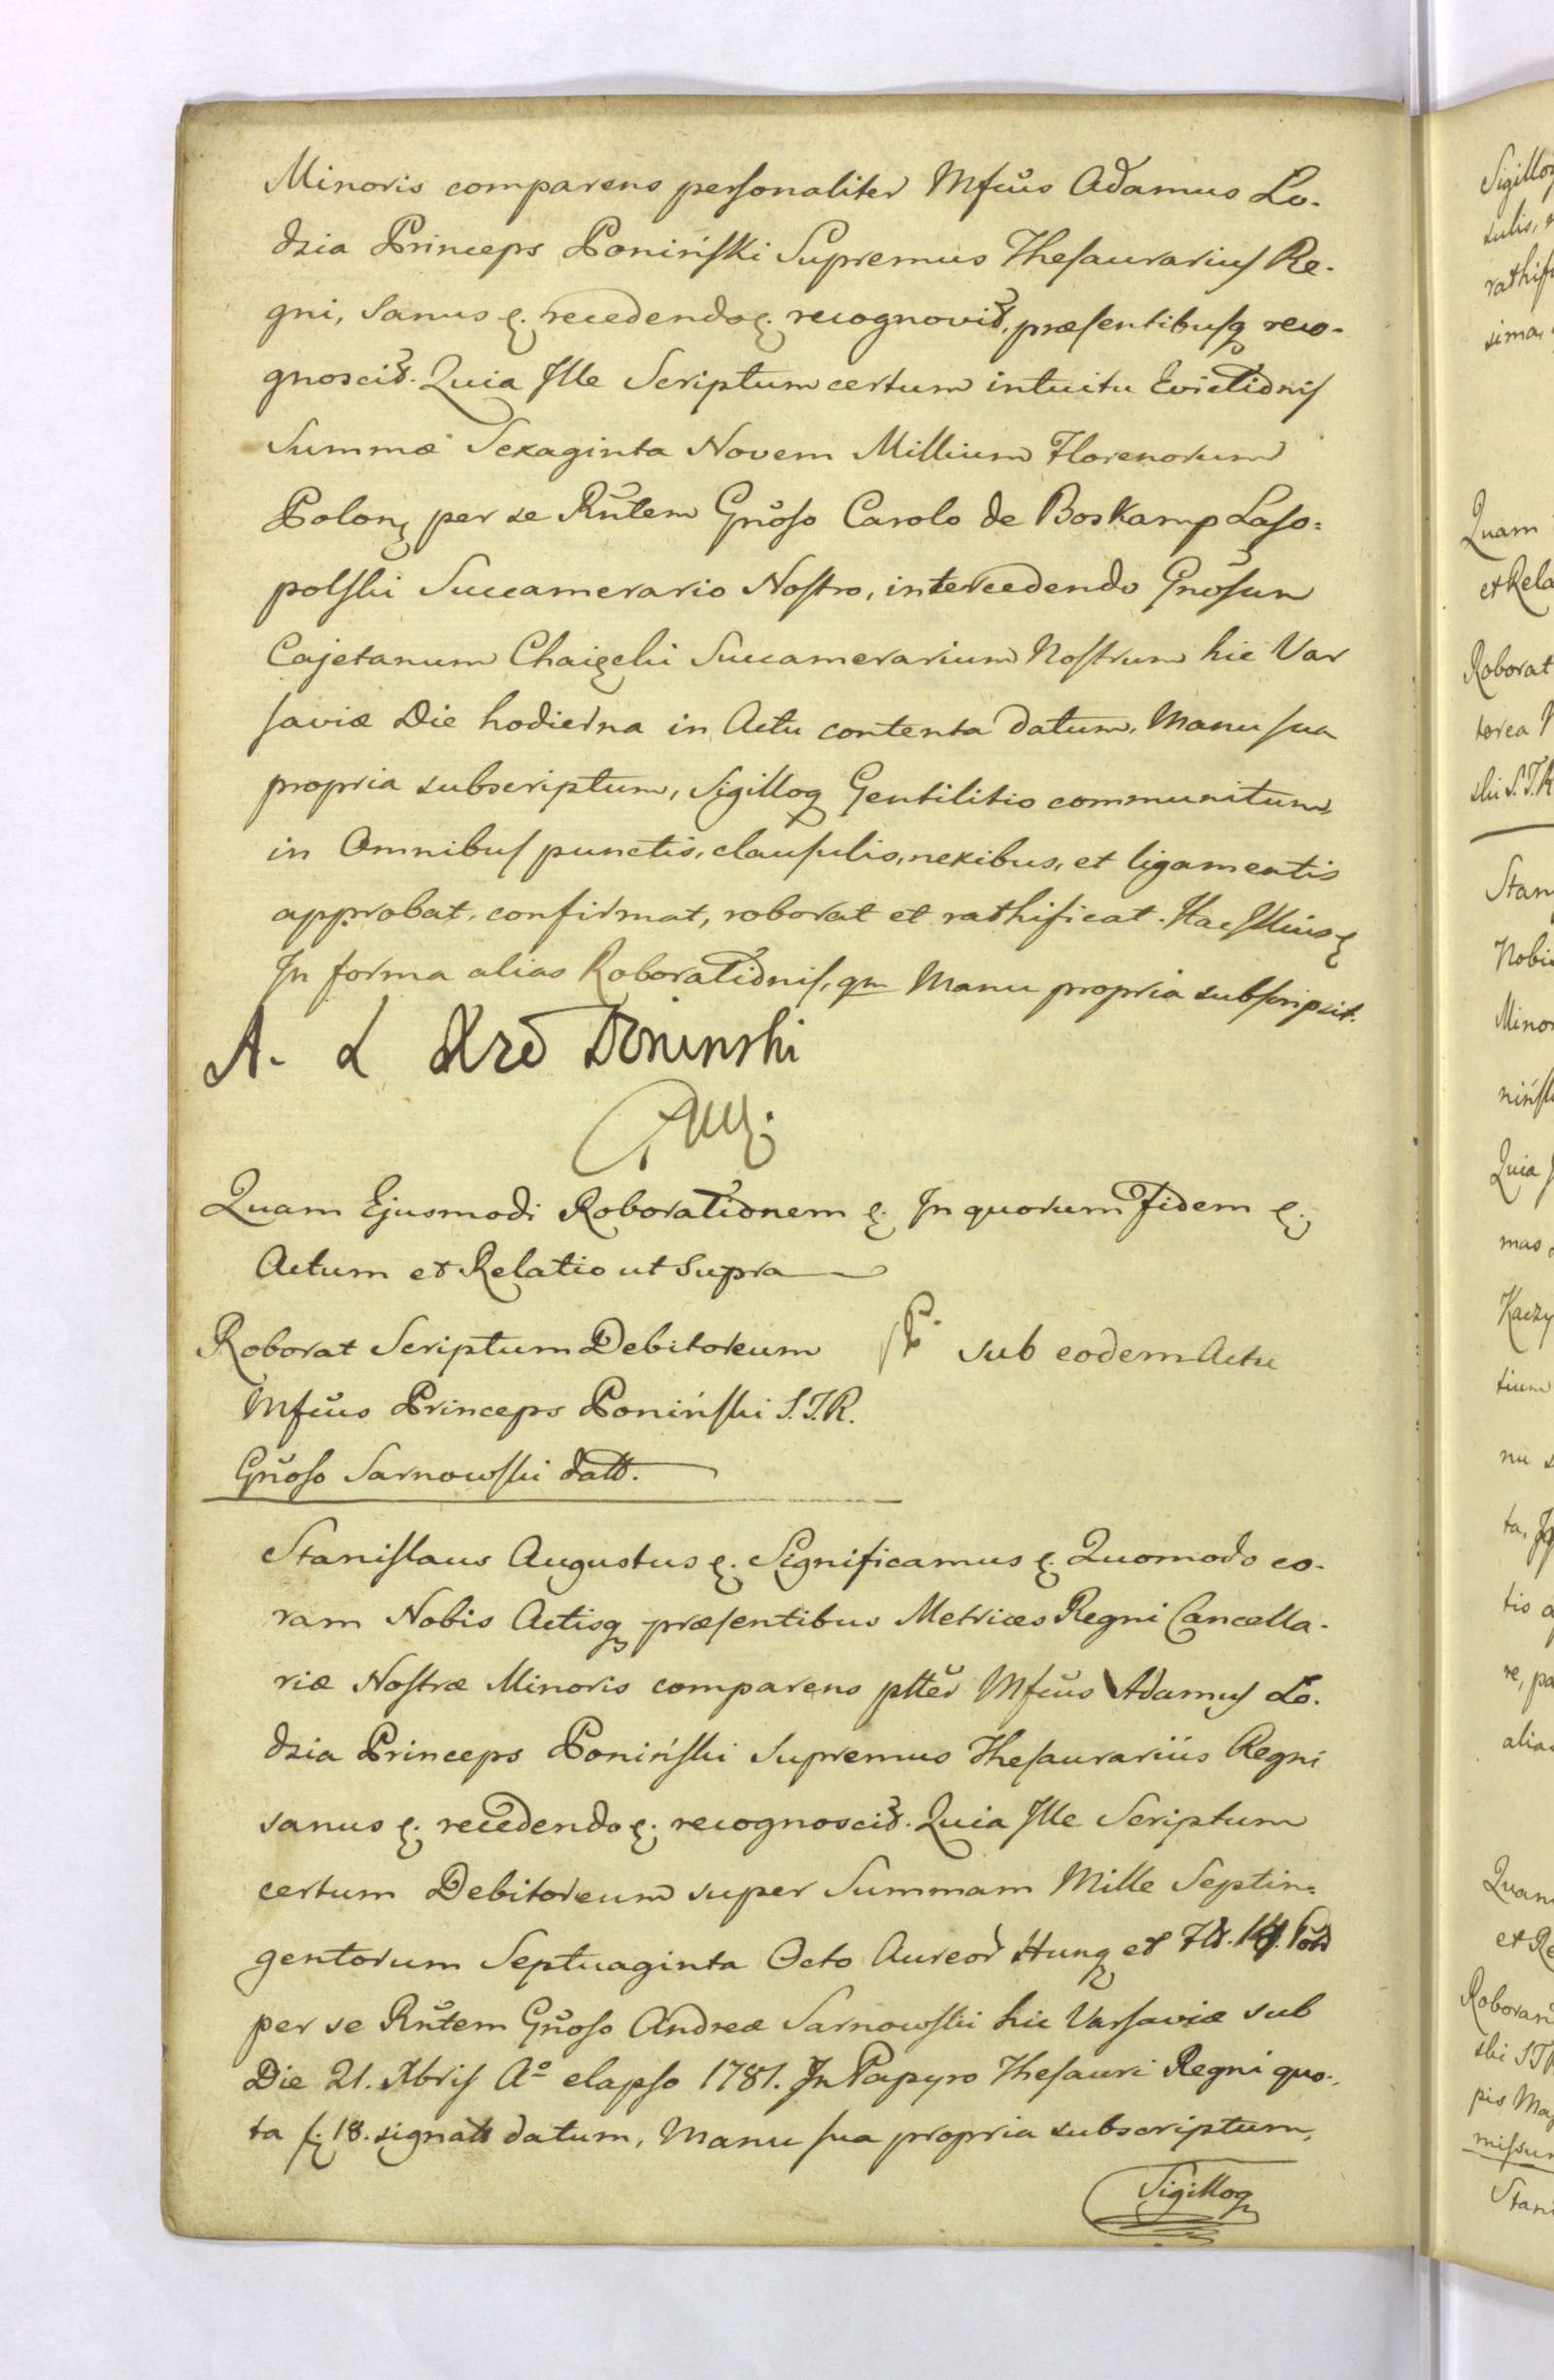 Minoris comparens personaliter Mfcus Adamus Lo-
dzia Princeps Poniński Supremus Thesaurarius Re-
gni, Sanus &. recedendo &. recognovit, præsentibusq reco-
gnoscit. Quia Ille Scriptum certum intuitu Evictionis
Summæ Sexaginta Novem Millium Florenorum
Polon per se Rntem Gnoso Carolo de Boskamp Laso=
polski Succamerario Nostro, intercedendo Gnosum
Cajetanum Succamerarium Nostrum hic Var
saviæ Die hodierna in Actu contenta datum, Manu sua
propria subscriptum, Sigilloq Gentilitio communitum,
in Omnibus punctis, clausulis, nexibus, et ligamentis
approbat, confirmat, roborat et rathificat. Hac Illius &
In forma alias Roborationis, qm Manu propria subscripsit.
A. Ł Xże Poninski
Quam Ejusmodi Roborationem &. In quorum Fidem &.
Actum et Relatio ut Supra
Roborat Scriptum Debitoreum sub eodem Actu
Mfcus Princeps Poniński S.T.R.
Gnoso Sarnowski datt.
Stanislaus Augustus &. Significamus &. Quomodo co-
ram Nobis Actisq præsentibus Metrices Regni Cancella-
riæ Nostræ Minoris comparens ptter Mfcus Adamus Lo-
dzia Princeps Poniński Supremus Thesaurarius Regni
sanus &. recedendo &. recognoscit. Quia Ille Scriptum
certum Debitoreum super Summam Mille Septin=
gentorum Septuaginta Octo Aureor Hung et Fl.
per se Rntem Gnoso Andreæ Sarnowski hic Varsaviæ sub
Die 21. Xbris Aº elapso 1781. In Papyro Thesauri Regni quo-
ta 18. signato datum, Manu sua propria subscriptum,
Sigilloq
Sigilloq
sulis,
Quam
et Rela
Roborat
ski S.T.R
Minor
Quia
mas
tium
alias
Quam
et Re
ski S T